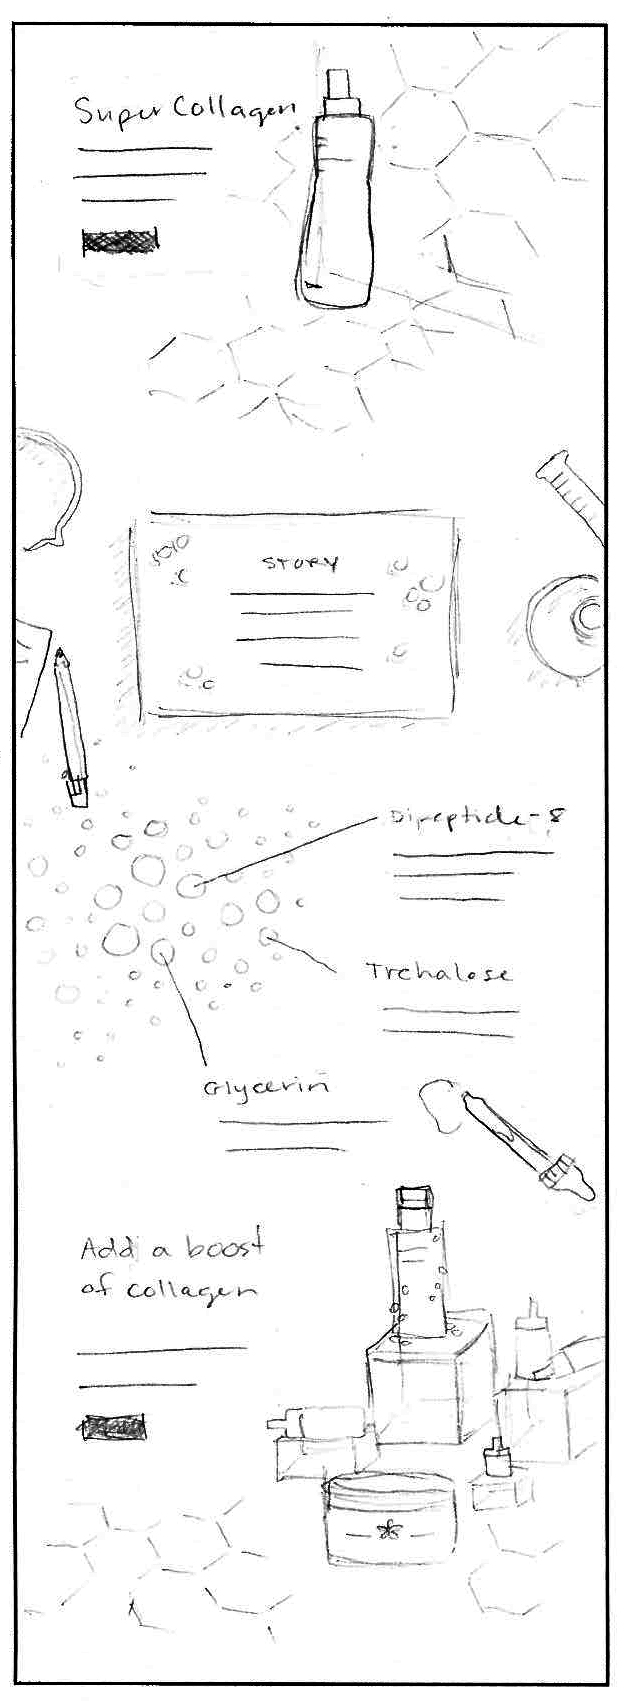 Super Collagen
STORY
Dipeptide-8
Trehalose
Glycerin
Add a boost
of collagen